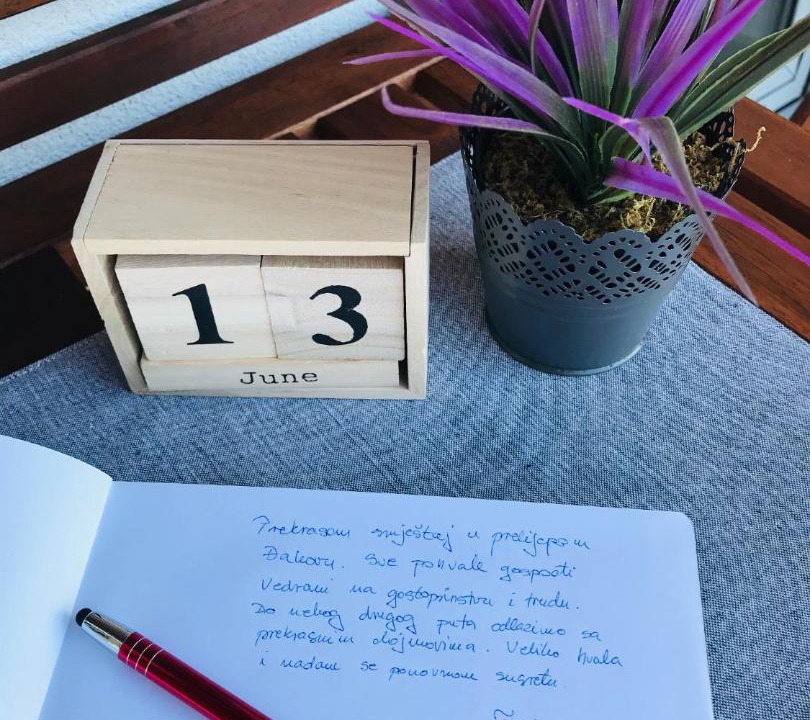 1 3
June
Prekrasan smještaj u prelijepom
Đakovu. Sve pohvale gospođi
Vedrani na gostoprimstvu i trudu.
Do nekog drugog puta odlazimo sa
prekrasnim dojmovima. Veliko hvala
i nadam se ponovnom susretu.